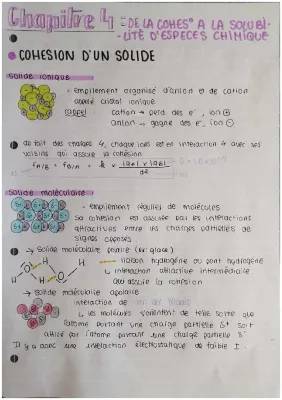 Chapitre 4 : DE LA COHES° A LA SOLUBI-
-LITÉ D'ESPECES CHIMIQUE
COHESION D'UN SOLIDE
solide ionique
- empilement organisé d'anion et de cation
appelé cristal ionique
cation → perd des e-, ion ⊕
anion → gagne des e-, ion ⊖
du fait des charges, chaque ion est en interaction avec ses
voisins qui assure la cohésion
solide moléculaire
- empilement régulier de molécules
Sa cohésion est assurée par les interactions
attractives entre les charges partielles de
signes opposés
→ Solide moléculaire polaire (ex: glace)
liaison hydrogène ou pont hydrogène
↳ interaction attractive intermédiaire
qui assure la cohésion
→ Solide moléculaire apolaire
interaction de
↳ les molécules s'orientent de telle sorte que
l'atome portant une charge partielle δ+ soit
attiré par l'atome portant une charge partielle δ-
Il y a avec une interaction électrostatique de faible I.